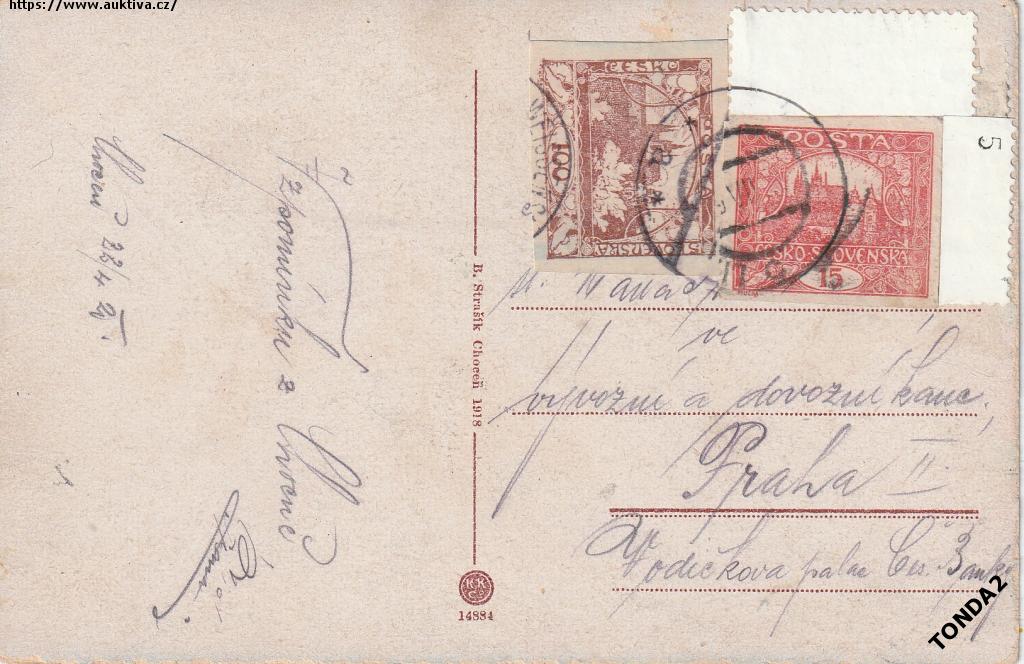 https://www.auktiva.cz/
Choceň 22/4 21.
Vzpomínku z Chocně
B. Strašík Choceň 1918
KK
Co
14884
ČESKO
SLOVENSKA
100
POŠTA
ČESKO-SLOVENSKÁ
15
5
ve
vývozní a dovozní kanc.
Praha II
Vodičkova palác Čes. Banky
TONDA2